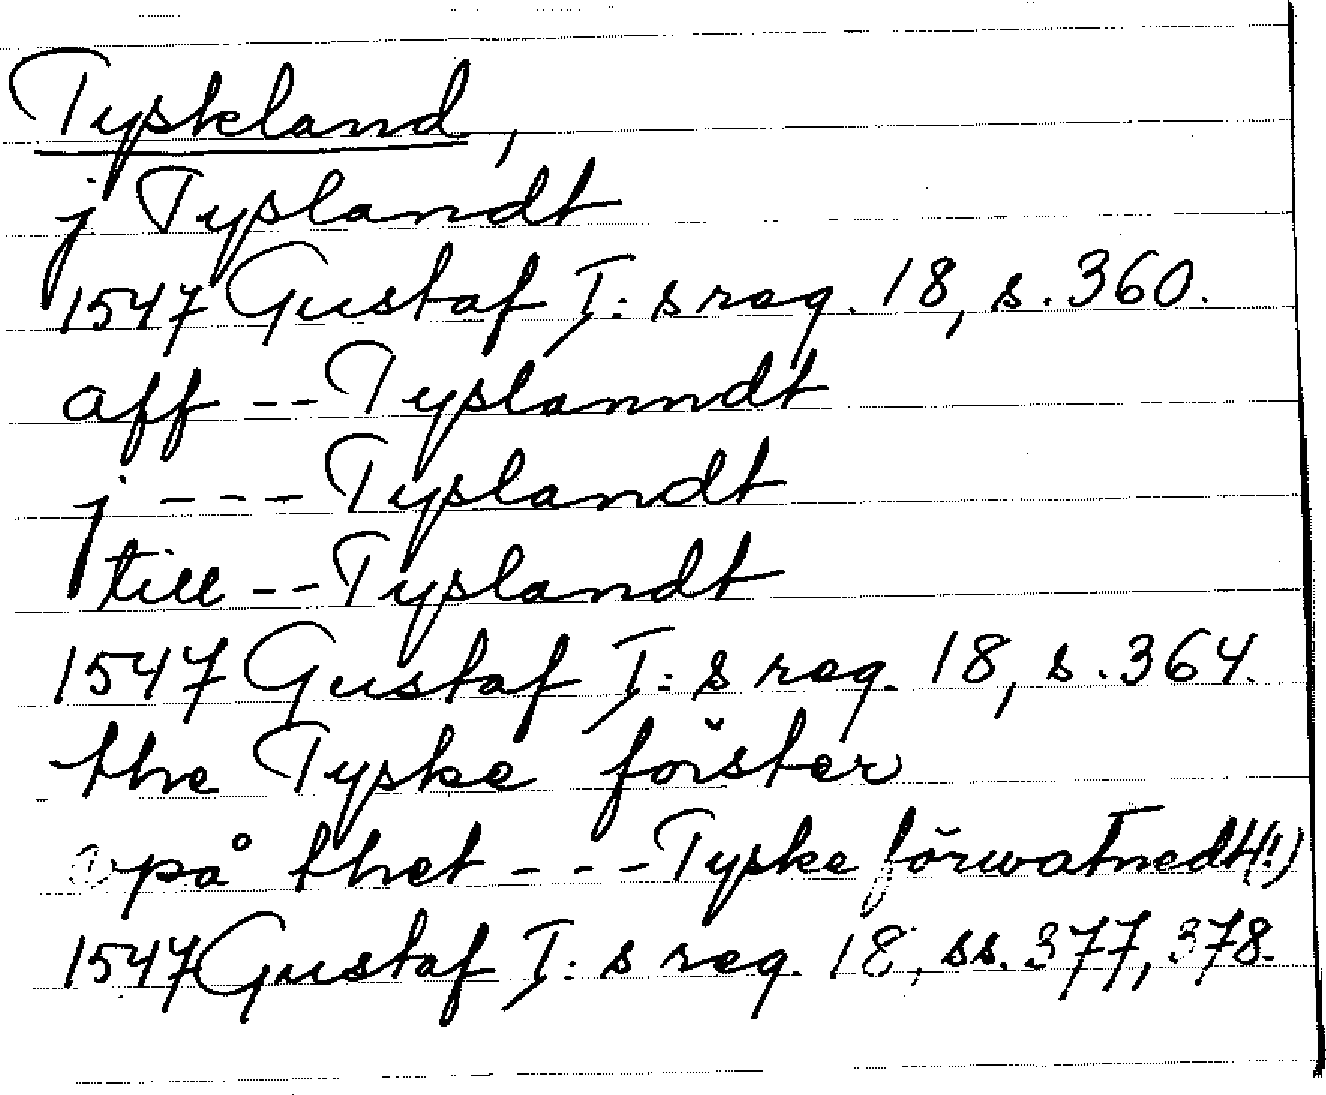 Tyskland,
j Tyslandt
1547 Gustaf I: s reg. 18, s. 360.
aff -- Tyslanndt
j --- Tyslandt
till -- Tyslandt
1547 Gustaf I: s reg. 18, s. 364.
the Tyske förster
opå thet --- Tyske förwatnedt(!)
1547 Gustaf I: s reg. 18, ss. 377, 378.